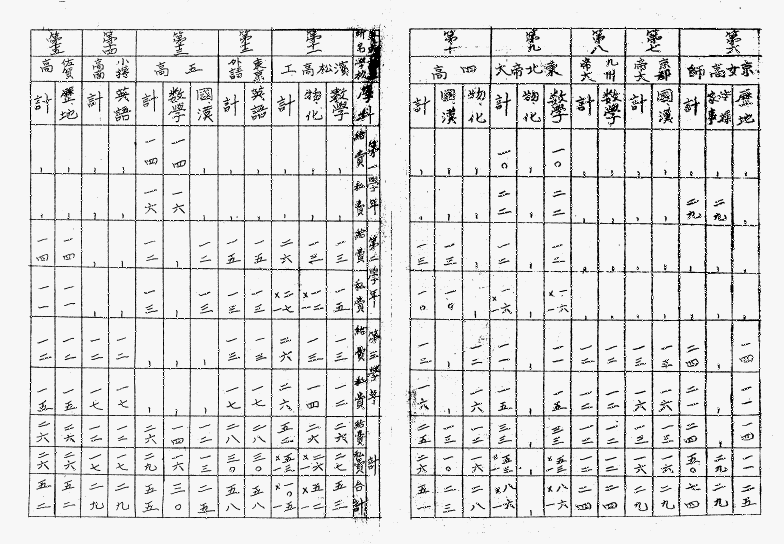 第六
京女高師
歴地 一四 一一 一四 一一 二五
家事 二九 二九 二九
計 二九 二四 二一 二四 五〇 七四
第七
京都帝大
國漢 一三 一六 一三 一六 二九
計 一三 一六 一三 一六 二九
第八
九州帝大
数學 一二 一二 一二 一二 二四
計 一二 一二 一二 一二 二四
第九
東北帝大
数學 一〇 二二 一二 一六 一一 一五 三三 五三 八六
物化
計 一〇 二二 一二 一六 一一 一五 三三 五三 八六
第十
四高
物・化 一二 一六 一二 一六 二八
國漢 一三 一〇 一三 一〇 二三
計 一三 一〇 一二 一六 二五 二六 五一
學科 第一學年 給費 私費 第二學年 給費 私費 第三學年 給費 私費 計 給費 私費 合計
第十一
濱松高工
数學 一三 一五 一三 一二 二六 二七 五三
物・化 一三 一二 一三 一四 二六 二六 五二
計 二六 二七 二六 二六 五二 五三 一〇五
東京外語
英語 一五 一三 一三 一七 二八 三〇 五八
計 一五 一三 一三 一七 二八 三〇 五八
第十三
五高
國漢 一二 一三 一二 一三 二五
数學 一四 一六 一四 一六 三〇
計 一四 一六 一二 一三 二六 二九 五五
第十四
小樽高商
英語 一二 一七 一二 一七 二九
計 一二 一七 一二 一七 二九
第十五
佐賀高
歴地 一四 一一 一二 一五 二六 二六 五二
計 一四 一一 一二 一五 二六 二六 五二